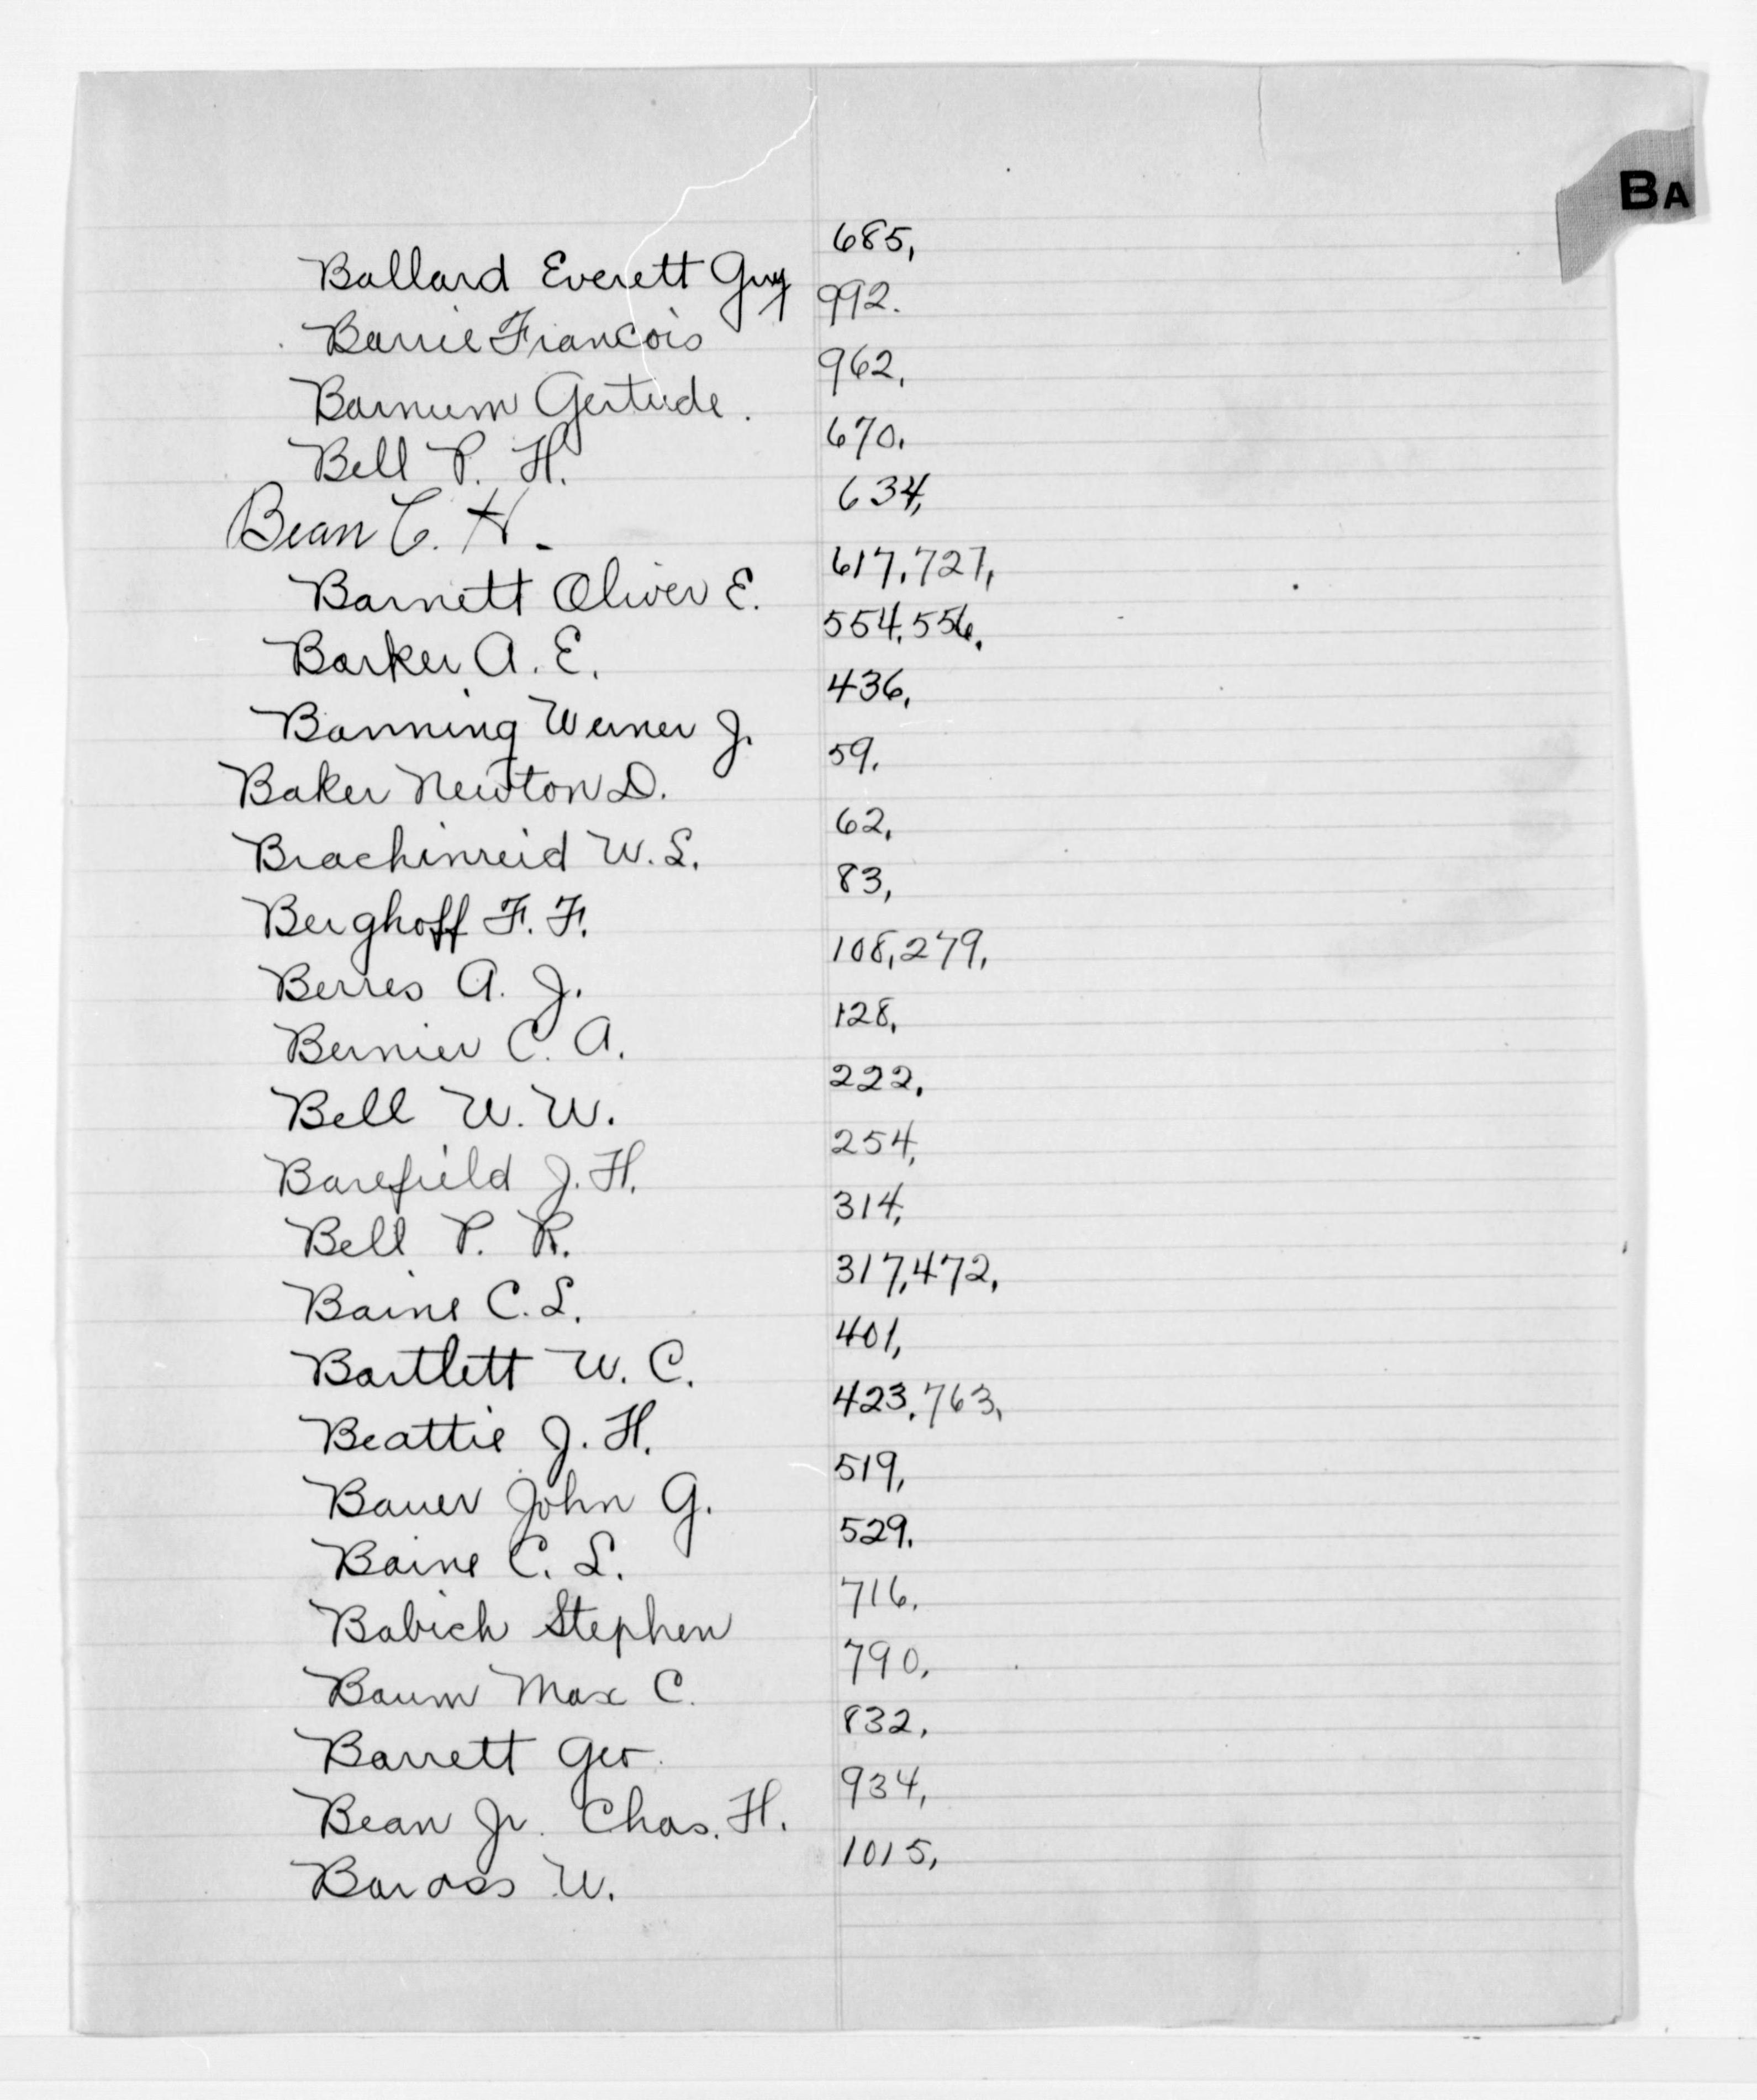 BA
Ballard Everett Guy 685,
Barrie Francois 992.
Barnum Gertude. 962,
Bell P. H. 670.
Bean C. H. 634,
Barnett Oliver E. 617, 727,
Barker A. E. 554, 556.
Banning Werner J. 436,
Baker Newton D. 59.
Brachinreid W. L. 62,
Berghoff F. F. 83,
Berres A. J. 108, 279,
Bernier C. A. 128,
Bell W. W. 222,
Barefield J. H. 254,
Bell P. R. 314,
Baine C. L. 317, 472,
Bartlett W. C. 401,
Beattie J. H. 423, 763,
Bauer John G. 519,
Baine C. L. 529.
Babich Stephen 716.
Baum Max C. 790,
Barrett Geo. 832,
Bean Jr. Chas. H. 934,
Baross W. 1015,